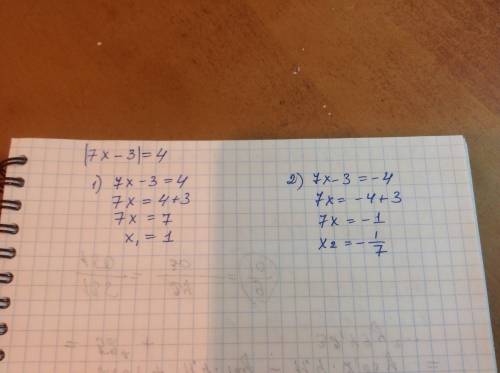 |7x-3|=4
1) 7x-3=4
7x=4+3
7x=7
x₁=1
2) 7x-3=-4
7x=-4+3
7x=-1
x₂=-1/7